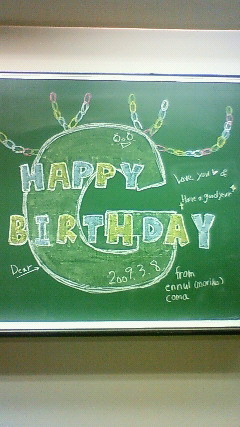 HAPPY
Love you
Have a good year
BIRTHDAY
Dear
C
2009.3.8
from
ennui (moriko)
coma